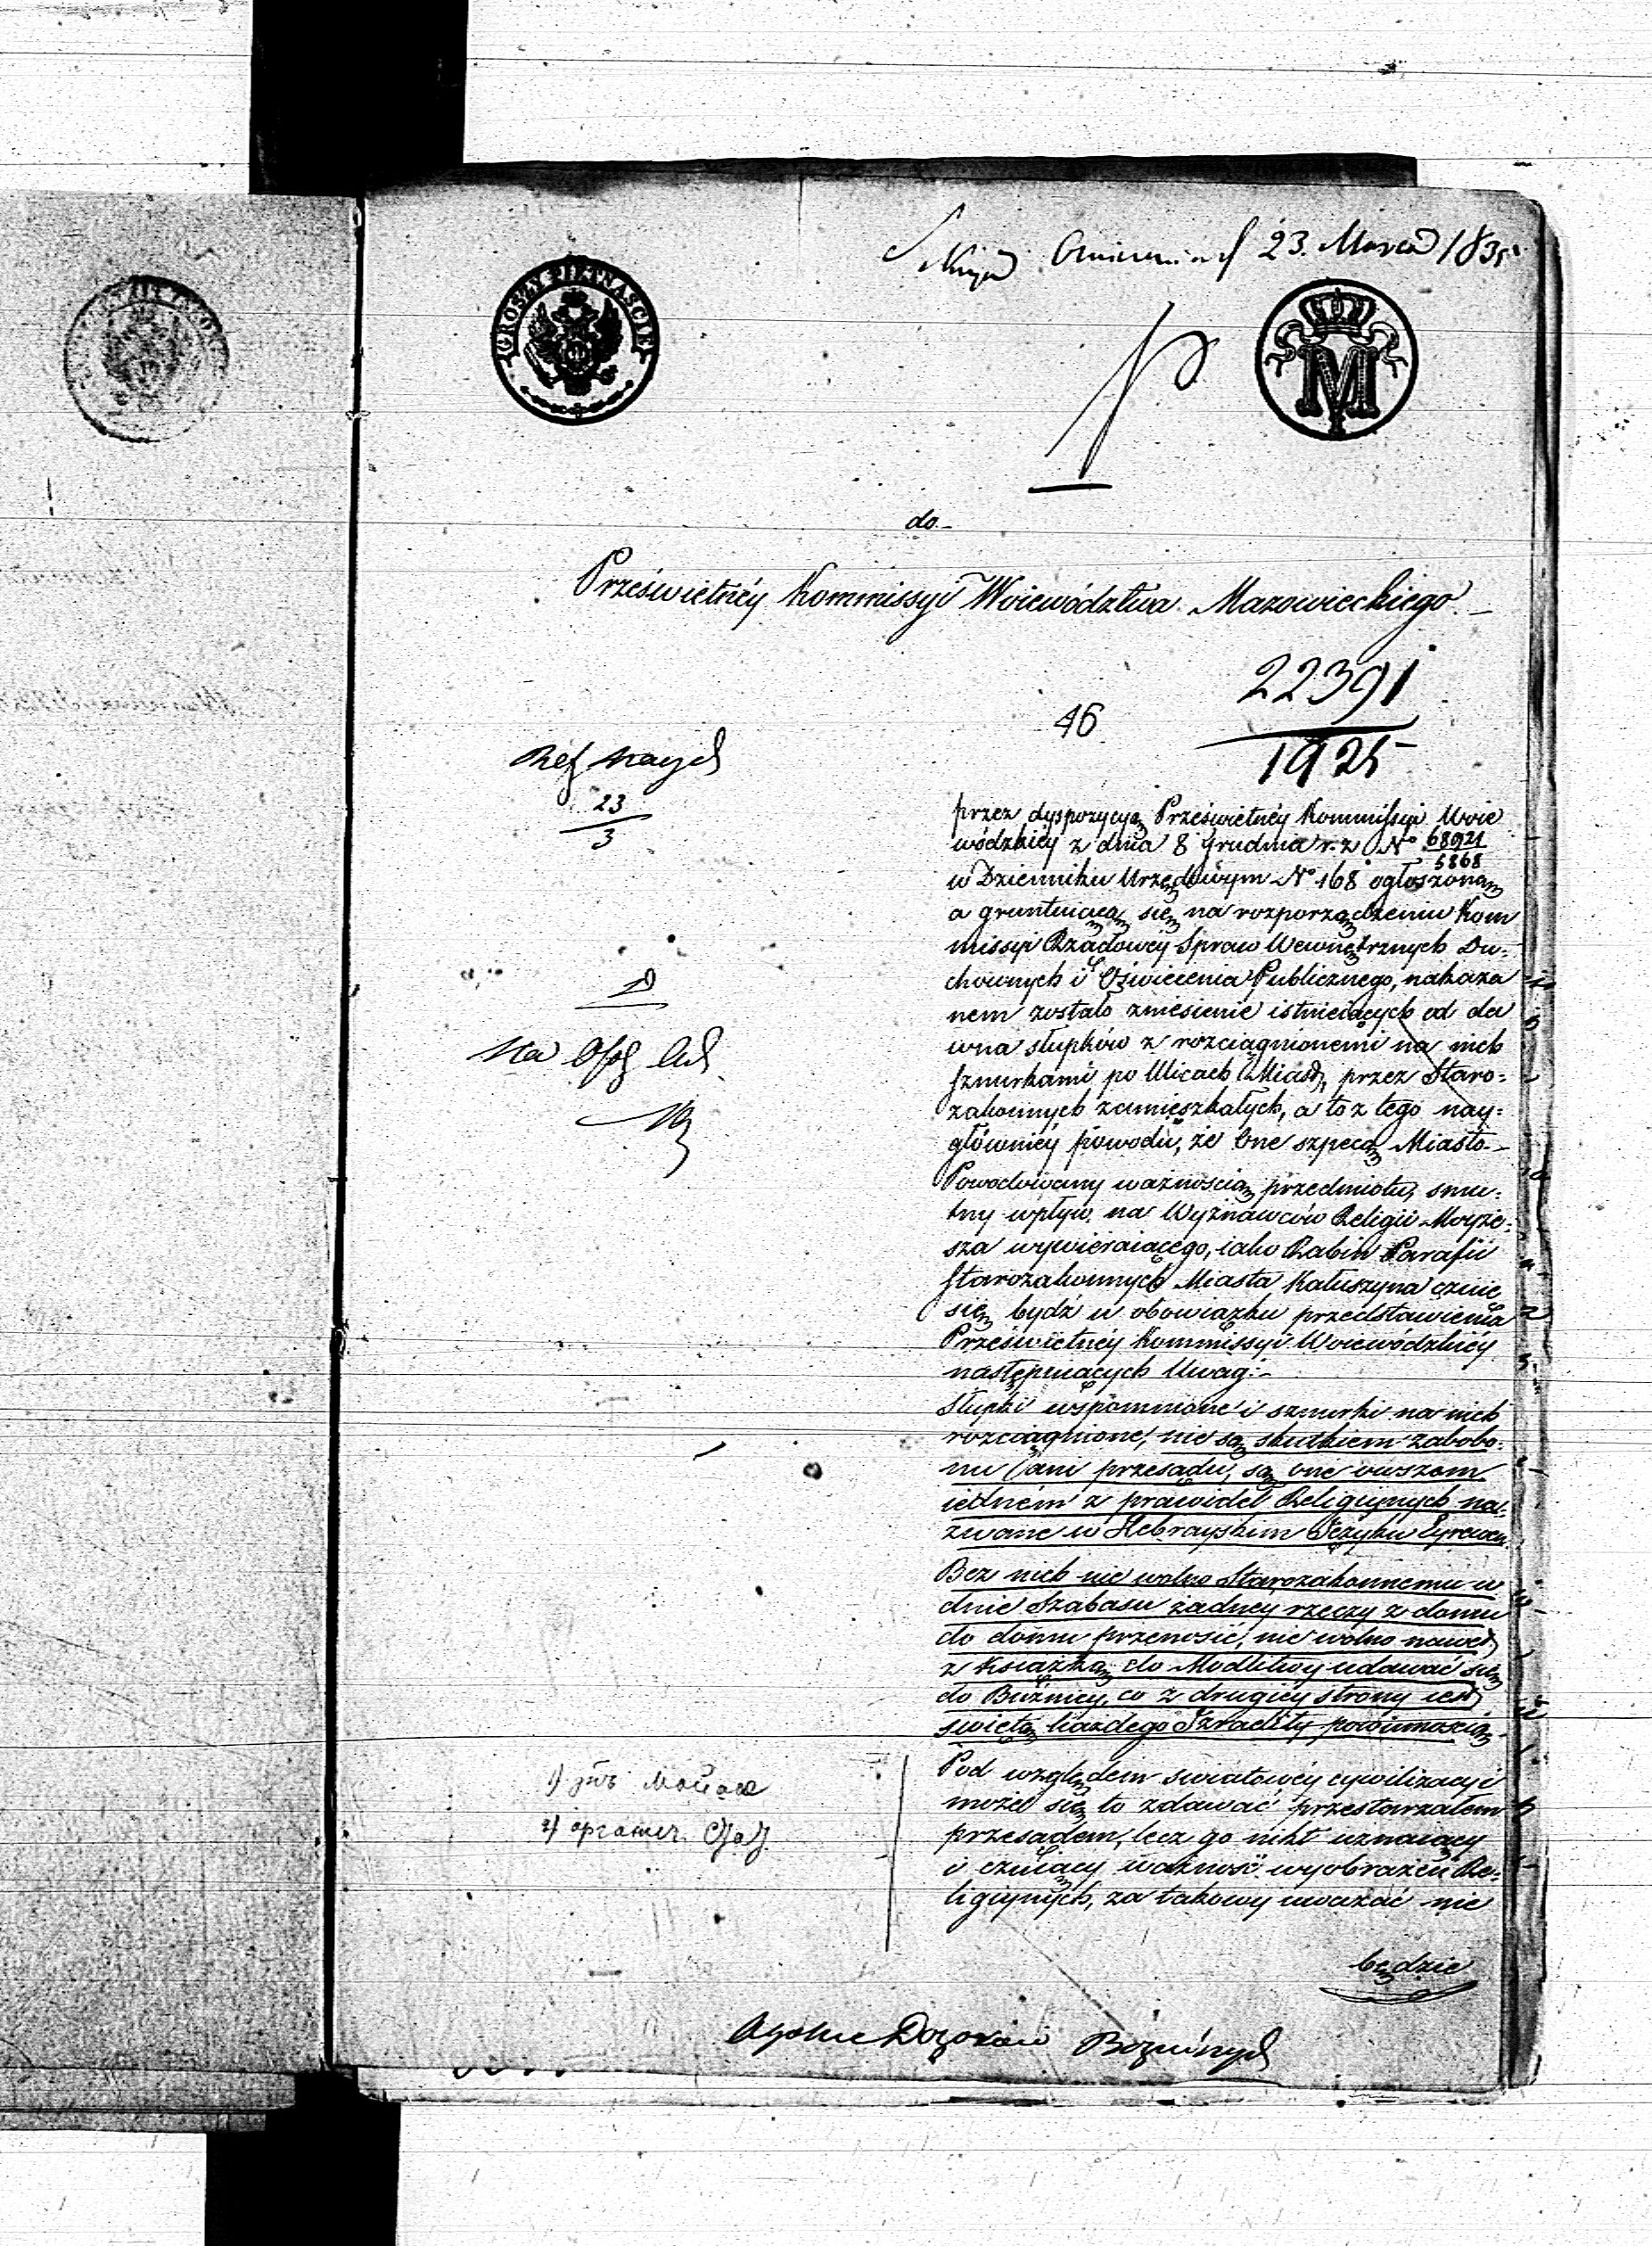 23. Marca 1835
GROSZY PIETNAŚCIE
M
do.-
Prześwietnéy Kommissyi Woiewództwa Mazowieckiego.-
22391
46
1925
Ref
23
3
przez dyspozycyą Prześwietnéy Kommissyi Woie
wódzkiey z dnia 8 Grudnia r. z. No 68921
5868
w Dzienniku Urzędowym No 168 ogłoszoną
a gruntuiącą się na rozporządzeniu Kom
missyi Rządowéy Spraw Wewnętrznych Du:
chownych i Oświecenia Publicznego, nakaza
nem zostało zniesienie istnieiących od da
wna słupków z rozciągnionemi na nich
sznurkami po Ulicach Miast, przez Staro:
zakonnych zamieszkałych, a to z tego nay:
główniéy powodu, że One szpecą Miasto.-
Powodowany ważnością przedmiotu, smu:
tny wpływ na Wyznawców Religii Moyże:
sza wywieraiącego, iako Rabin Parafii
Starozakonnych Miasta Kałuszyna czuie
się bydź w obowiązku przedstawienia
Prześwietnéy Kommissyi Woiewódzkiéy
następuiących Uwag:-
Słupki wspomnione i sznurki na nich
rozciągnione, nie są skutkiem zabobo:
nu ani przesądu, są one owszem
iednem z prawideł Religiynych na:
zwane w Hebrayskim Ięzyku
Bez nich nie wolno Starozakonnemu w
dnie Szabasu żadney rzeczy z domu
do domu przenosić, nie wolno nawet
z Książką do Modlitwy udawać się
do Bużnicy, co z drugiey strony iest
świętą każdego Izraelity powinnością.
Pod względem światowéy cywilizacyi
może się to zdawać przestarzałem
przesądem, lecz go nikt uznaiący
i czuiący ważność wyobrażeń Re:
ligiynych, za takowy uważać nie
będzie
Dozorów Bóżniczych